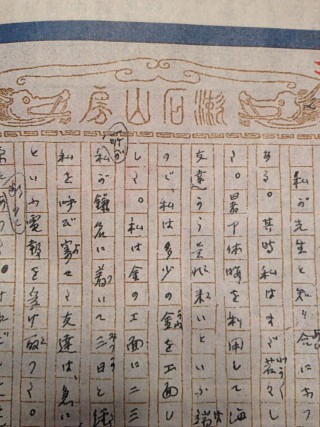 漱石山房
私が先生と知り合になつ
ある。其時私はまだ若々し
た。暑中休暇を利用して海
友達から是非来いといふ端
ので、私は多少の金を工面し
した。私は金の工面に二三
私が鎌倉に着いて三日と経
私を呼び寄せた友達は、急に
といふ電報を受け取つた。